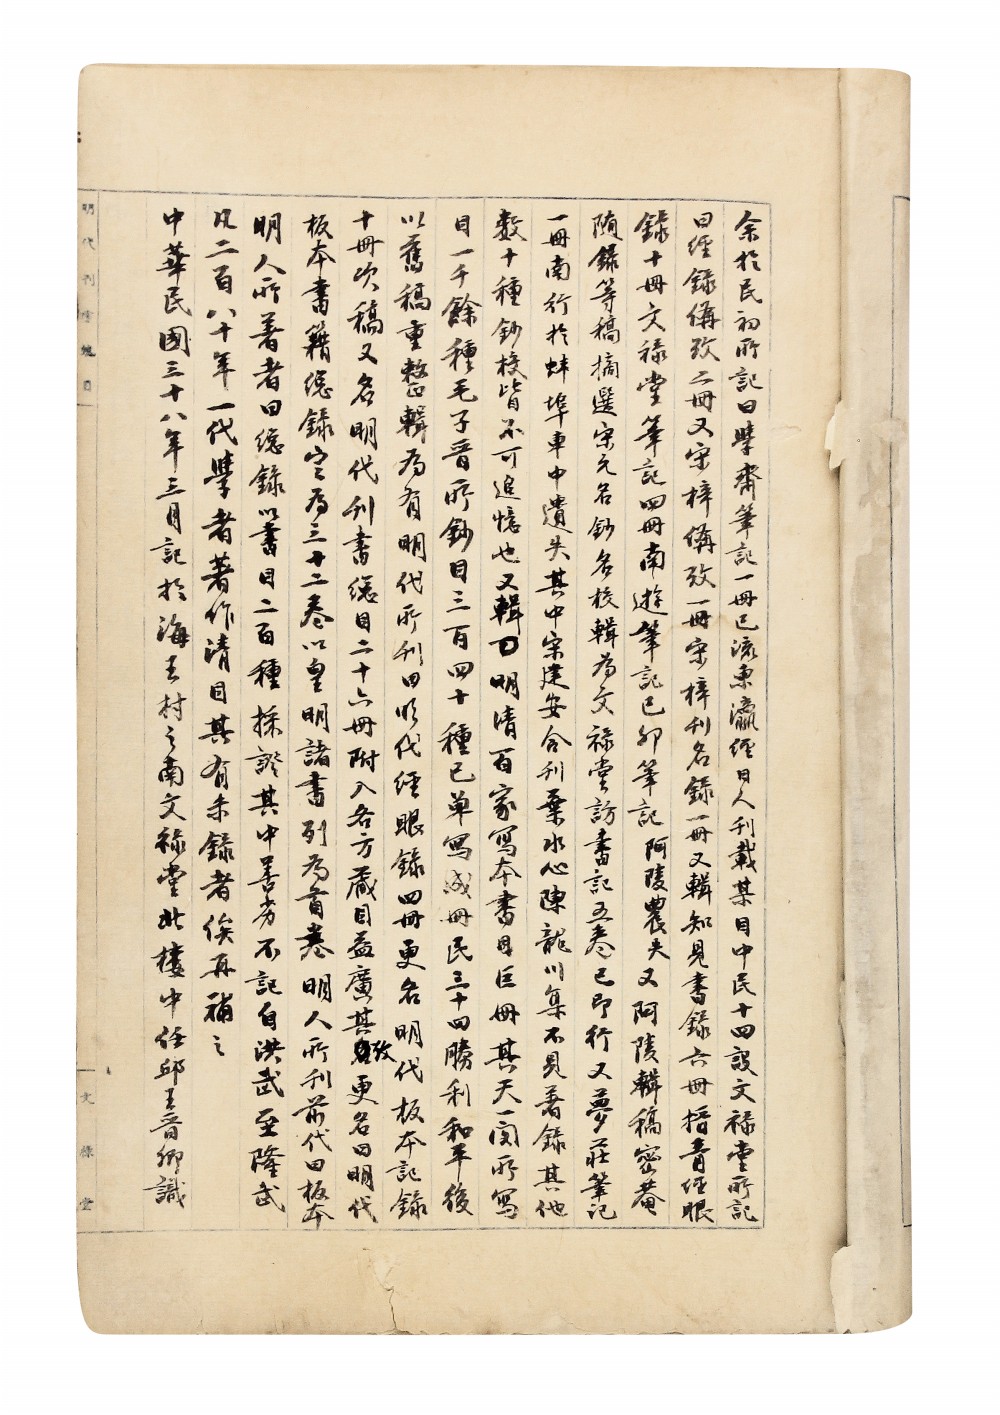 余於民初所記曰學齋筆記一冊已流東瀛經日人刊載某目中民十四設文祿堂所記
曰經錄備攷二冊又宋梓備攷一冊宋梓刊名錄一冊又輯知見書錄六冊搢青經眼
錄十冊文祿堂筆記四冊南遊筆記己卯筆記阿陵農夫又阿陵輯稿密菴
隨錄等稿摘選宋元名鈔名校輯為文祿堂訪書記五卷已印行又夢莊筆記
一冊南行於蚌埠車中遺失其中宋建安合刊葉水心陳龍川集不見著錄其他
數十種鈔校皆不可追憶也又輯曰明清百家寫本書目巨冊其天一閣所寫
目一千餘種毛子晉所鈔目三百四十種已草寫成冊民三十四勝利和平後
以舊稿重整輯為有明代所刊曰順代經眼錄四冊更名明代板本記錄
十冊次稿又名明代刊書總目二十六冊附入各方藏目益廣其攷更名曰明代
板本書籍總錄定為三十二卷以皇明諸書列為首卷明人所刊前代曰板本
明人所著者曰總錄以書目二百種採證其中善劣不記自洪武至隆武
凡二百八十年一代學者著作清目其有未錄者俟再補之
中華民國三十八年三月記於海王村之南文祿堂北樓中任邱王晉卿識
明代刊書總目
一文祿堂